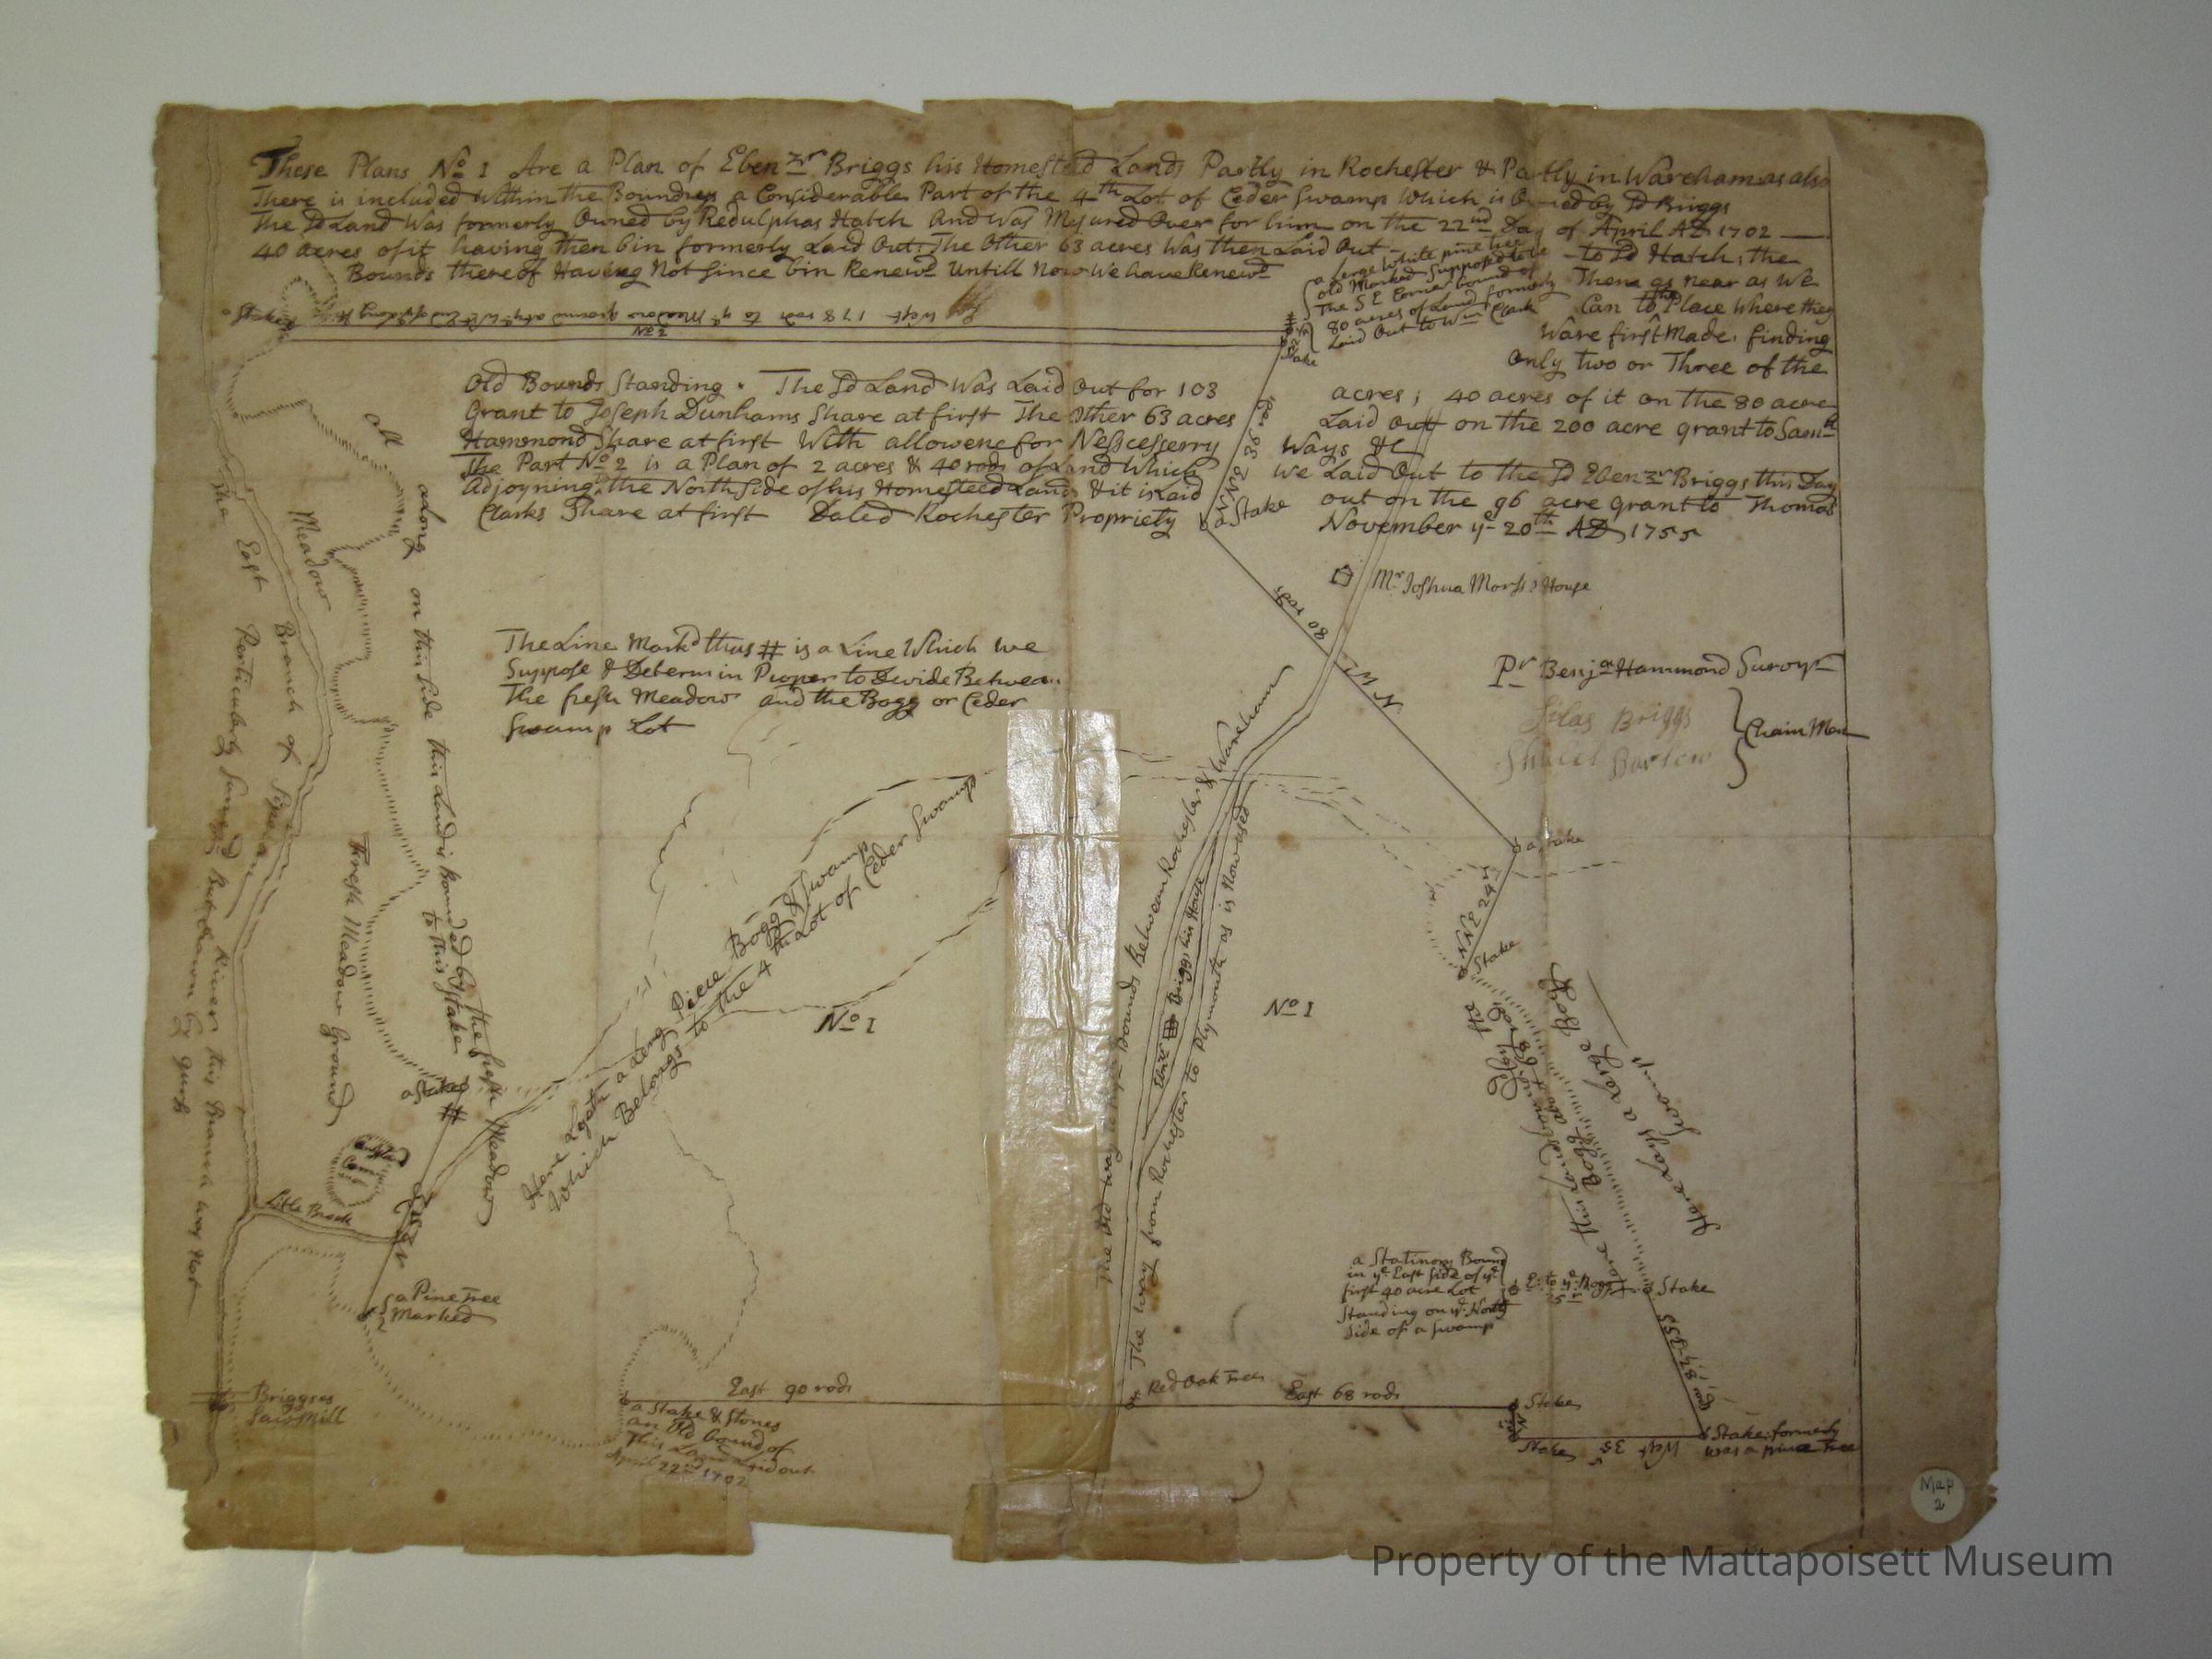 These Plans No 1 Are a Plan of Ebenzr Briggs his Homested Lands Partly in Rochester & Partly in Wareham as also
There is included within the Boundreys a Considerable Part of the 4th Lot of Ceder Swamp Which is Owned by Sd Briggs
The Sd Land Was formerly Owned by Redulphas Hatch and was Mesured Over for him on the 22nd Day of April AD 1702
40 acres of it having then bin formerly Laid Out: The Other 63 acres Was then Laid Out - to Sd Hatch; the
Bounds thereof Having Not Since bin Renewd Untill Now We have Renewd Them as near as We
Can to the Place Where they
Ware first Made, finding
only two or Three of the
a Large White pine tree
old Marked Supposed to be
The S E Corner bound of
80 acres of Land formerly
Laid Out to Wm Clark
a Stake
West 178 rods to ye Meadow
No 2
Stake
Old Bounds Standing. The Sd Land Was Laid Out for 103 acres; 40 acres of it on the 80 acre
Grant to Joseph Dunhams Share at first The Other 63 acres Laid out on the 200 acre grant to Samll
Hammond Share at first With allowenc for Nescesserry Ways &c
The Part No 2 is a Plan of 2 acres & 40 rods of Land Which We Laid Out to the Sd Ebenzr Briggs this Day
Adjoyning to the North Side of his Homesteed Land & it is Laid out on the 96 acre grant to Thomas
Clarks Share at first Dated Rochester Propriety November ye 20th AD 1755
NNE 36 rods
a Stake
Mr Joshua Morss's House
80 rods
N W
The Line Markd thus # is a Line Which we
Suppose & Determin Proper to Devide Between
The fresh Meadow and the Bogg or Ceder
Swamp Lot
Pr Benja Hammond Survyr
Silas Briggs
Shuell Barlow
Chain Men
all along on this Side this Land is Bounded by the fresh Meadow
to this Stake
Meadow
The East Branch of Sipican River this Branch was Not
Perticularly Survayd But drawn by guess
Fresh Meadow Ground
a Stake
#
Little Brook
a Pine Tree
Marked
Briggses
Saw Mill
Here Lyeth a Long Piece Bogg & Swamp
Which Belongs to the 4th Lot of Ceder Swamp
No 1
The Old way Bounds Between Rochester & Wareham
Briggs his House
The way from Rochester to Plymouth as is Now used
No 1
a Stake
NNE 24 rs
Stake
Here Lays a Large Bogg
Swamp
a Stationary Bound
in ye East Side of ye
first 40 acre Lot
Standing on ye North
Side of a Swamp
E. to ye Bogg
Stake
East 90 rods
a Stake & Stones
an Old Bound of
This Land Laid out
April 22nd 1702
Red Oak Tree
East 68 rods
Stake
Stake
West 35
Stake formerly
was a pine Tree
Map
2
Property of the Mattapoisett Museum